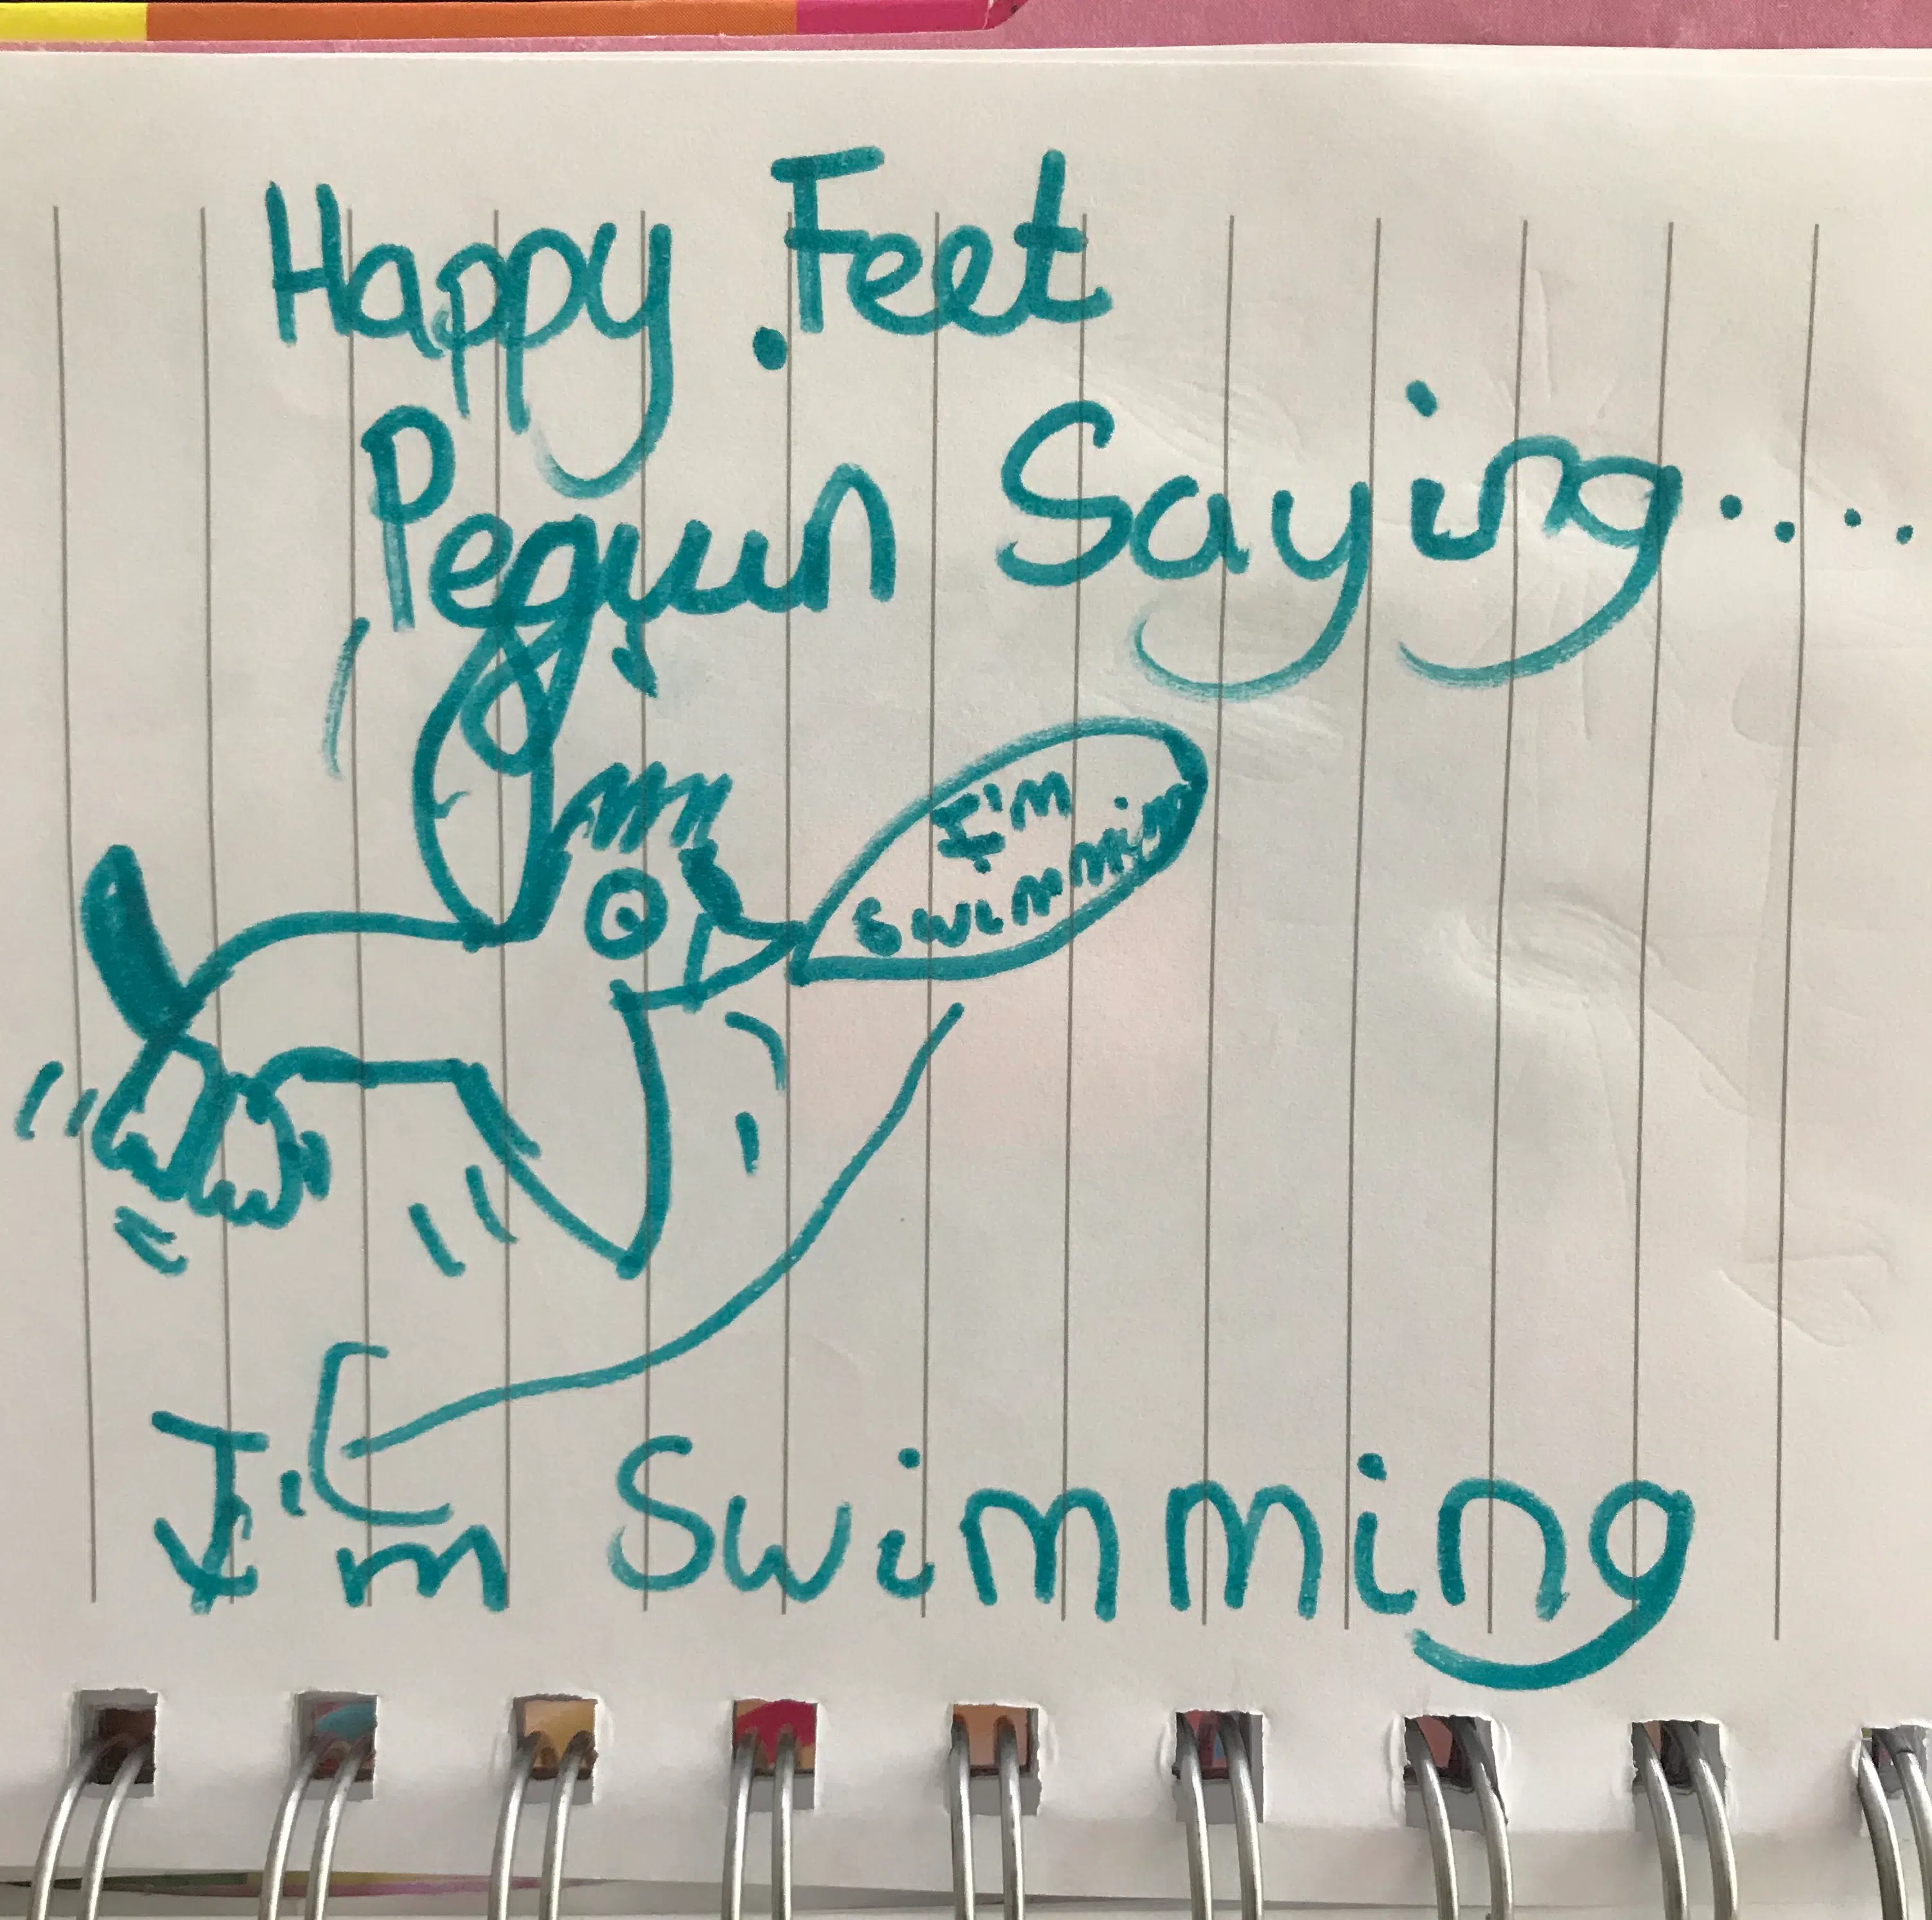 Happy Feet
Peguin Saying....
I'm
Swimmin
I'm Swimming